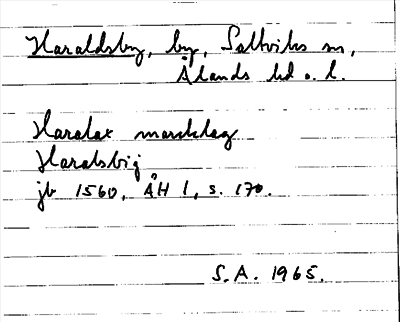 Haraldsby, by, Saltviks sn,
Ålands hd o. l.
Haralax marcklag
Haralsbij
jb 1560, ÅH 1, s. 170.
S.A. 1965.